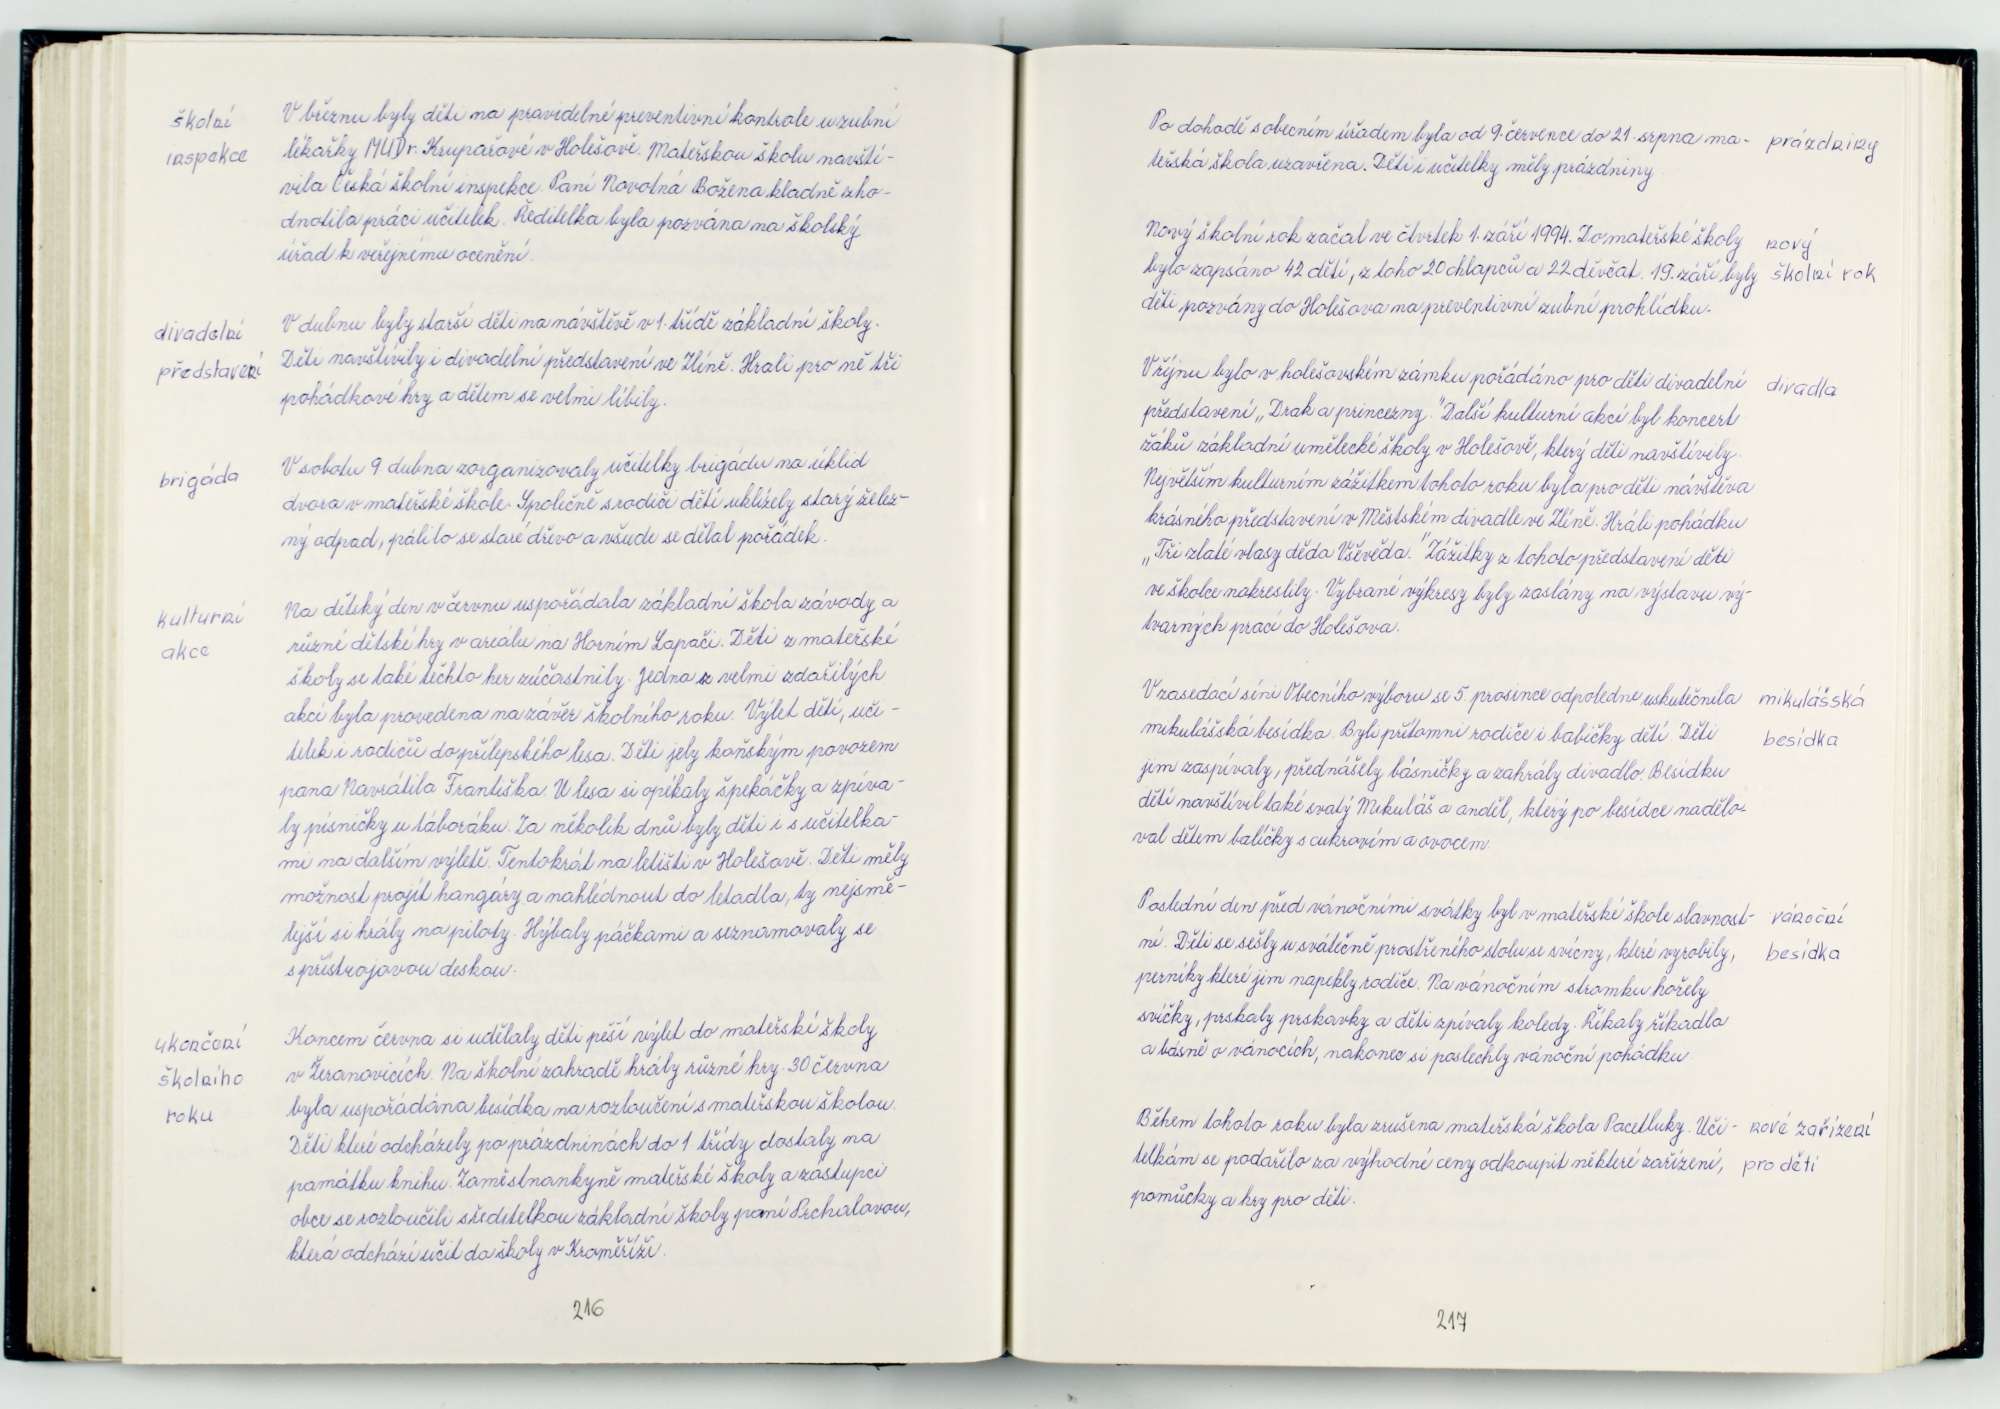 školní
inspekce
V březnu byly děti na pravidelné preventivní kontrole u zubní
lékařky MUDr. Krupařové v Holešově. Mateřskou školu navští-
vila Česká školní inspekce. Paní Novotná Božena kladně zho-
dnotila práci učitelek. Ředitelka byla pozvána na školský
úřad k veřejnému ocenění.
divadelní
představení
V dubnu byly starší děti na návštěvě v 1. třídě základní školy.
Děti navštívily i divadelní představení ve Zlíně. Hrali pro ně tři
pohádkové hry a dětem se velmi líbily.
brigáda
V sobotu 9 dubna zorganizovaly učitelky brigádu na úklid
dvora v mateřské škole. Společně s rodiči dětí uklízely starý želez-
ný odpad, pálilo se staré dřevo a všude se dělal pořádek.
kulturní
akce
Na dětský den v červnu uspořádala základní škola závody a
různé dětské hry v areálu na Horním Lapači. Děti z mateřské
školy se také těchto her zúčastnily. Jedna z velmi zdařilých
akcí byla provedena na závěr školního roku. Výlet dětí, uči-
telek i rodičů do přílepského lesa. Děti jely koňským povozem
pana Navrátila Františka. U lesa si opékaly špekáčky a zpíva-
ly písničky u táboráku. Za několik dnů byly děti i s učitelka-
mi na dalším výletě. Tentokrát na letišti v Holešově. Děti měly
možnost projít hangáry a nahlédnout do letadla, ty nejsmě-
lejší si hrály na piloty. Hýbaly páčkami a seznamovaly se
s přístrojovou deskou.
ukončení
školního
roku
Koncem června si udělaly děti pěší výlet do mateřské školy
v Žeranovicích. Na školní zahradě hrály různé hry. 30 června
byla uspořádána besídka na rozloučení s mateřskou školou.
Děti které odcházely po prázdninách do 1 třídy dostaly na
památku knihu. Zaměstnankyně mateřské školy a zástupci
obce se rozloučili s ředitelkou základní školy paní Prchalovou,
která odchází učit do školy v Kroměříži.
216
Po dohodě s obecním úřadem byla od 9. července do 21. srpna ma-
teřská škola uzavřena. Děti i učitelky měly prázdniny
prázdniny
Nový školní rok začal ve čtvrtek 1. září 1994. Do mateřské školy
bylo zapsáno 42 dětí, z toho 20 chlapců a 22 děvčat. 19. září byly
děti pozvány do Holešova na preventivní zubní prohlídku.
nový
školní rok
V říjnu bylo v holešovském zámku pořádáno pro děti divadelní
představení „Drak a princezny." Další kulturní akcí byl koncert
žáků základní umělecké školy v Holešově, který děti navštívily.
Největším kulturním zážitkem tohoto roku byla pro děti návštěva
krásného představení v Městském divadle ve Zlíně. Hráli pohádku
„Tři zlaté vlasy děda Vševěda." Zážitky z tohoto představení děti
ve školce nakreslily. Vybrané výkresy byly zaslány na výstavu vý-
tvarných prací do Holešova.
divadla
V zasedací síni Obecního výboru se 5. prosince odpoledne uskutečnila
mikulášská besídka. Byli přítomni rodiče i babičky dětí. Děti
jem zaspívaly, přednášely básničky a zahrály divadlo. Besídku
dětí navštívil také svatý Mikuláš a anděl, který po besídce nadělo-
val dětem balíčky s cukrovím a ovocem.
mikulášská
besídka
Poslední den před vánočními svátky byl v mateřské škole slavnost-
ní. Děti se sešly u svátečně prostřeného stolu se svícny, které vyrobily,
perníky které jim napekly rodiče. Na vánočním stromku hořely
svíčky, prskaly prskavky a děti zpívaly koledy. Říkaly říkadla
a básně o vánocích, nakonec si poslechly vánoční pohádku
vánoční
besídka
Během tohoto roku byla zrušena mateřská škola Pacetluky. Uči-
telkám se podařilo za výhodné ceny odkoupit některé zařízení,
pomůcky a hry pro děti.
nové zařízení
pro děti
217